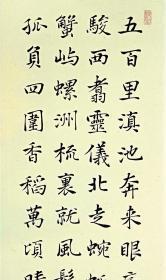 五百里滇池奔來眼
駿西翥靈儀北走蜿
蟹嶼螺洲梳裹就風鬟
孤負四圍香稻萬頃晴